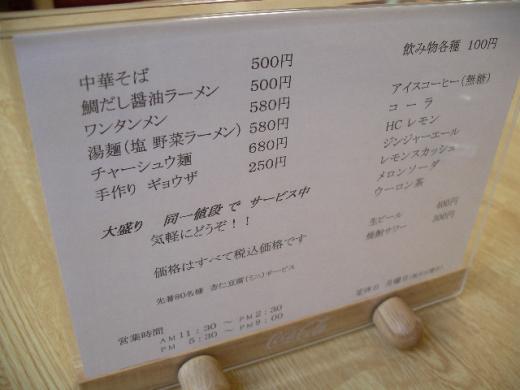 中華そば 500円
鯛だし醤油ラーメン 500円
ワンタンメン 580円
湯麺(塩 野菜ラーメン) 580円
チャーシュウ麺 680円
手作り ギョウザ 250円
大盛り 同一値段 で サービス中
気軽にどうぞ！！
価格はすべて税込価格です
先着80名様 杏仁豆腐(ミニ)サービス
営業時間 AM 11：30 ～ PM 2：30
PM 5：30 ～ PM 9：00
飲み物各種 100円
アイスコーヒー(無糖)
コーラ
HC レモン
ジンジャーエール
レモンスカッシュ
メロンソーダ
ウーロン茶
生ビール 400円
焼酎サワー 300円
定休日 月曜日
Coca-Cola